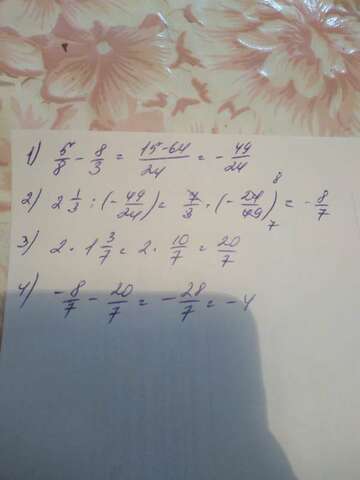 1) 5/8 - 8/3 = (15-64)/24 = - 49/24
2) 2 1/3 : (- 49/24) = 7/3 · (- 24/49) = - 8/7
3) 2 · 1 3/7 = 2 · 10/7 = 20/7
4) - 8/7 - 20/7 = - 28/7 = - 4